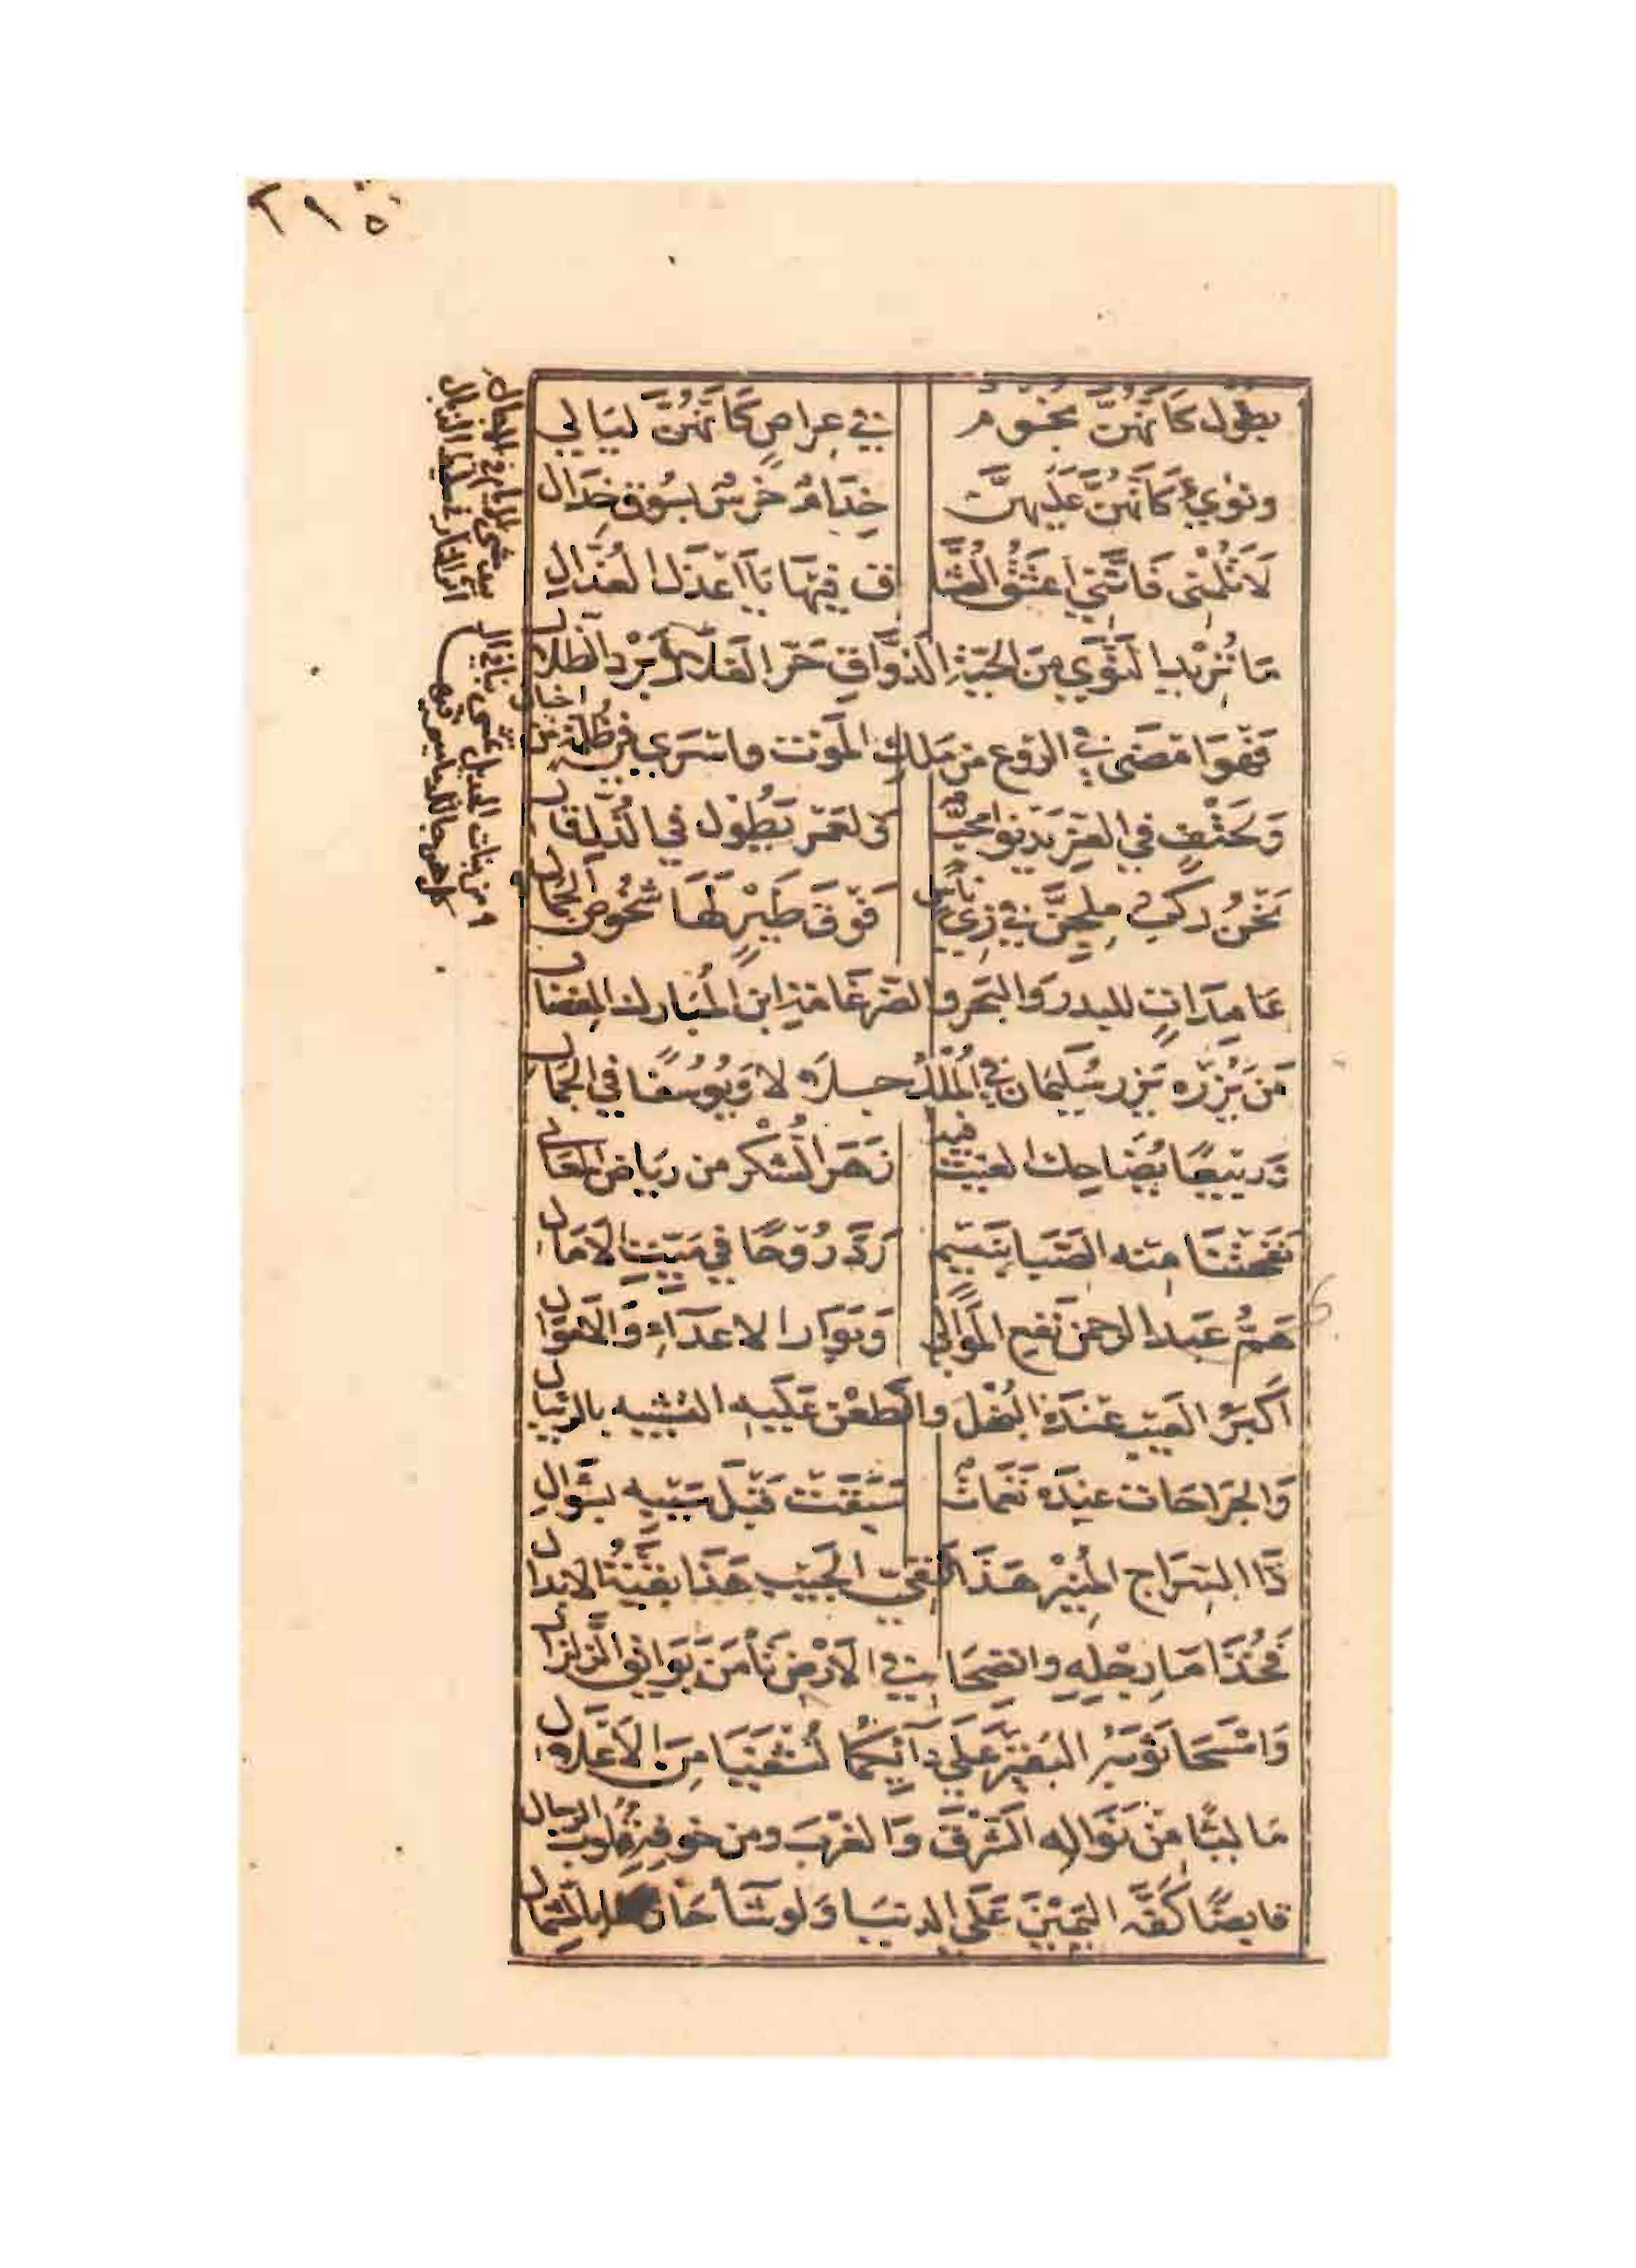 ٢٩٥
بطلول كَأَنَّهُنَّ نجُوم في عِراصٍ كَأَنَّهُنَّ لَيَالي
ونؤيٌّ كَأَنَّهُنَّ عَلَيهنَّ خِدَامٌ خُرسٌ بسُوق خِدَال
لَا تَلُمْنِي فَاِنَّنِي اعشَقُ العُشَّا ق فِيهَا يَا اعذَلَ العُذَّالِ
مَا تُرِيد النَّوَي مِنَ الحَيَّةِ الذَّوَّاقِ حَرَّ الفَلَا وَبَرْدَ الظّلال
فَهْوَ امضَى في الروع من مَلكِ المَوت واسْرَي في ظلمة من خيال
وَلحَتْفٍ في العِزِّ يَدنوا مُحِبٌّ وَلِعُمْر يَطُوْل في الذُّلّ قال
نَحْنُ رَكبٌ مِلجِنِّ في زِيِّ ناسٍ فَوْقَ طَيْرٍ لَهَا شُخُوص الجمال
من بنات الجديل تمشي بنا في ال بيد مشي الايام في الاجال
عَامِدَاتٍ للبدر وَالبَحر والضّرغَامَةِ ابن المُبَارك المِفضال
مَن يَزُرْه يَزر سُلَيمَان في المُلْكِ جلَالَة وَيُوسُفًا في الجَمَال
وَرَبيعًا يُضَاحِك الغيث فيه زَهَر الشُّكْر من ريَاض المَعَالي
نَفَحَتْنَا مِنه الصَّبَا بِنَسِيمٍ رَدَّ رُوْحًا في مَيِّتِ الآمَال
هَمُّ عَبد الرحمن نَفع المَوَالي وَبَوَار الاعدَآءِ وَالامْوَال
اَكبَرُ العَيب عِندَهُ البُخْل والطعْن عَلَيهِ التشبيه بالرّئبال
وَالجرَاحَات عِندَهُ نَغَمَاتٌ سَبَقَت قَبلَ سَيبه بسُؤَالِ
ذَا السِّرَاج المُنِيْر هَذَا النَّقِيّ الجَيْبِ هَذَا بَقِيَّةُ الابدال
فَخُذَا مَآ رِجْلِهِ وانضِحَا في الاَرْض تَأْمَنْ بَوَائق الزلزال
وَامْسَحَا ثَوبَهُ البَقِيرَ عَلَي دَآئِكُمَا تُشفَيَا مِنَ الاَعْلَال
مَالئًا مِنْ نَوَاله الشَّرْقَ وَالغَرْبَ ومن خوفِهِ قُلوبَ الرجال
قابضًا كَفَّه اليَمِيْنَ عَلَي الدنيَا وَلو شَآء حَازها بالشِّمال